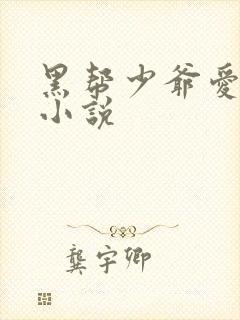 黑帮少爷愛
小説
龔宇卿